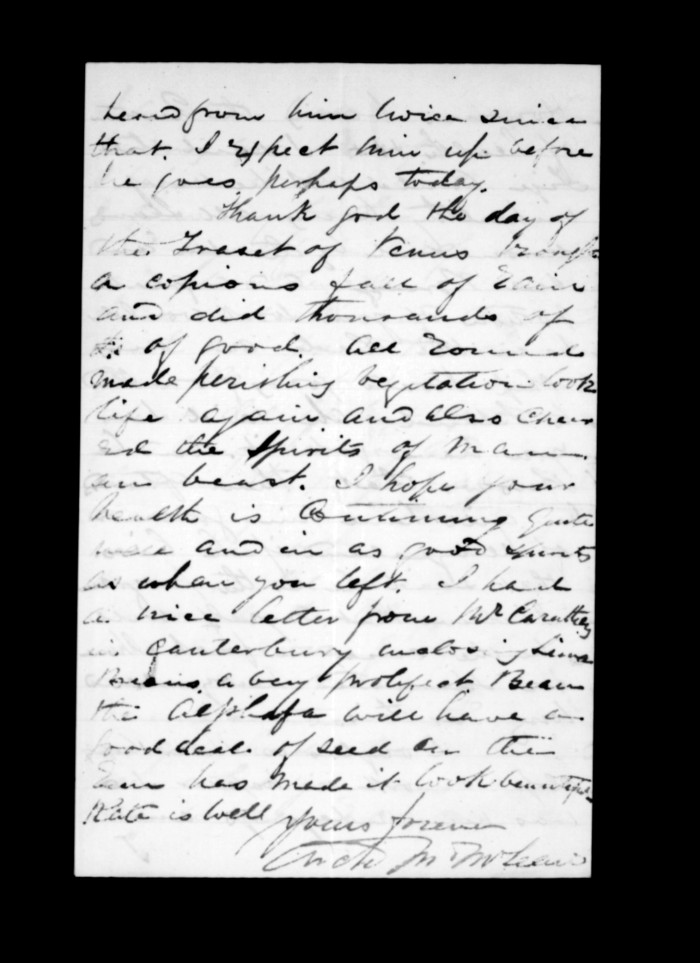 heard from him twice since
that. I Expect him up before
he goes, perhaps today.
Thank god the day of
the Traset of Venus brought
a copious fall of Rain
and did thousands of
£s of good. All round
made perishing vegitation look
life again and also cheer
ed the Spirits of man
an beast. I hope your
health is Continuing quite
nice and in as good spirits
as when you left. I had
a nice letter from Mr Caruthers
in Canterbury enclosing Lima
Beans, a very prolifect Bean
the Alphafa will have a
good deal of seed on the
Rain has made it look beautiful
Kate is well yours forever
Archd McLean